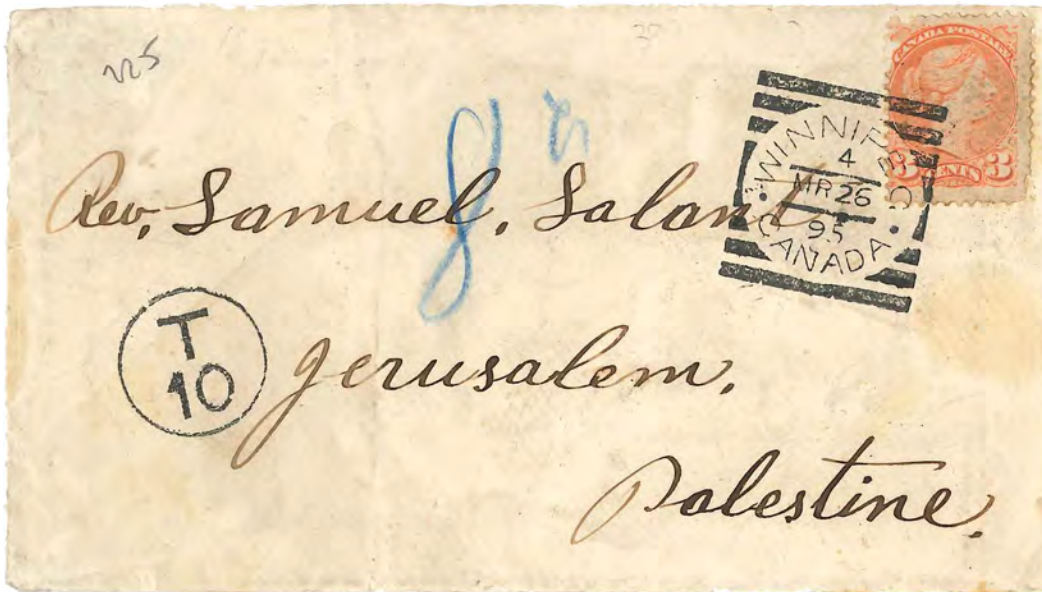 225
CANADA POSTAGE
3 CENTS 3
WINNIPEG
4
MR 26
95
CANADA
8
Rev. Samuel. Salant
T
10
Jerusalem.
Palestine.